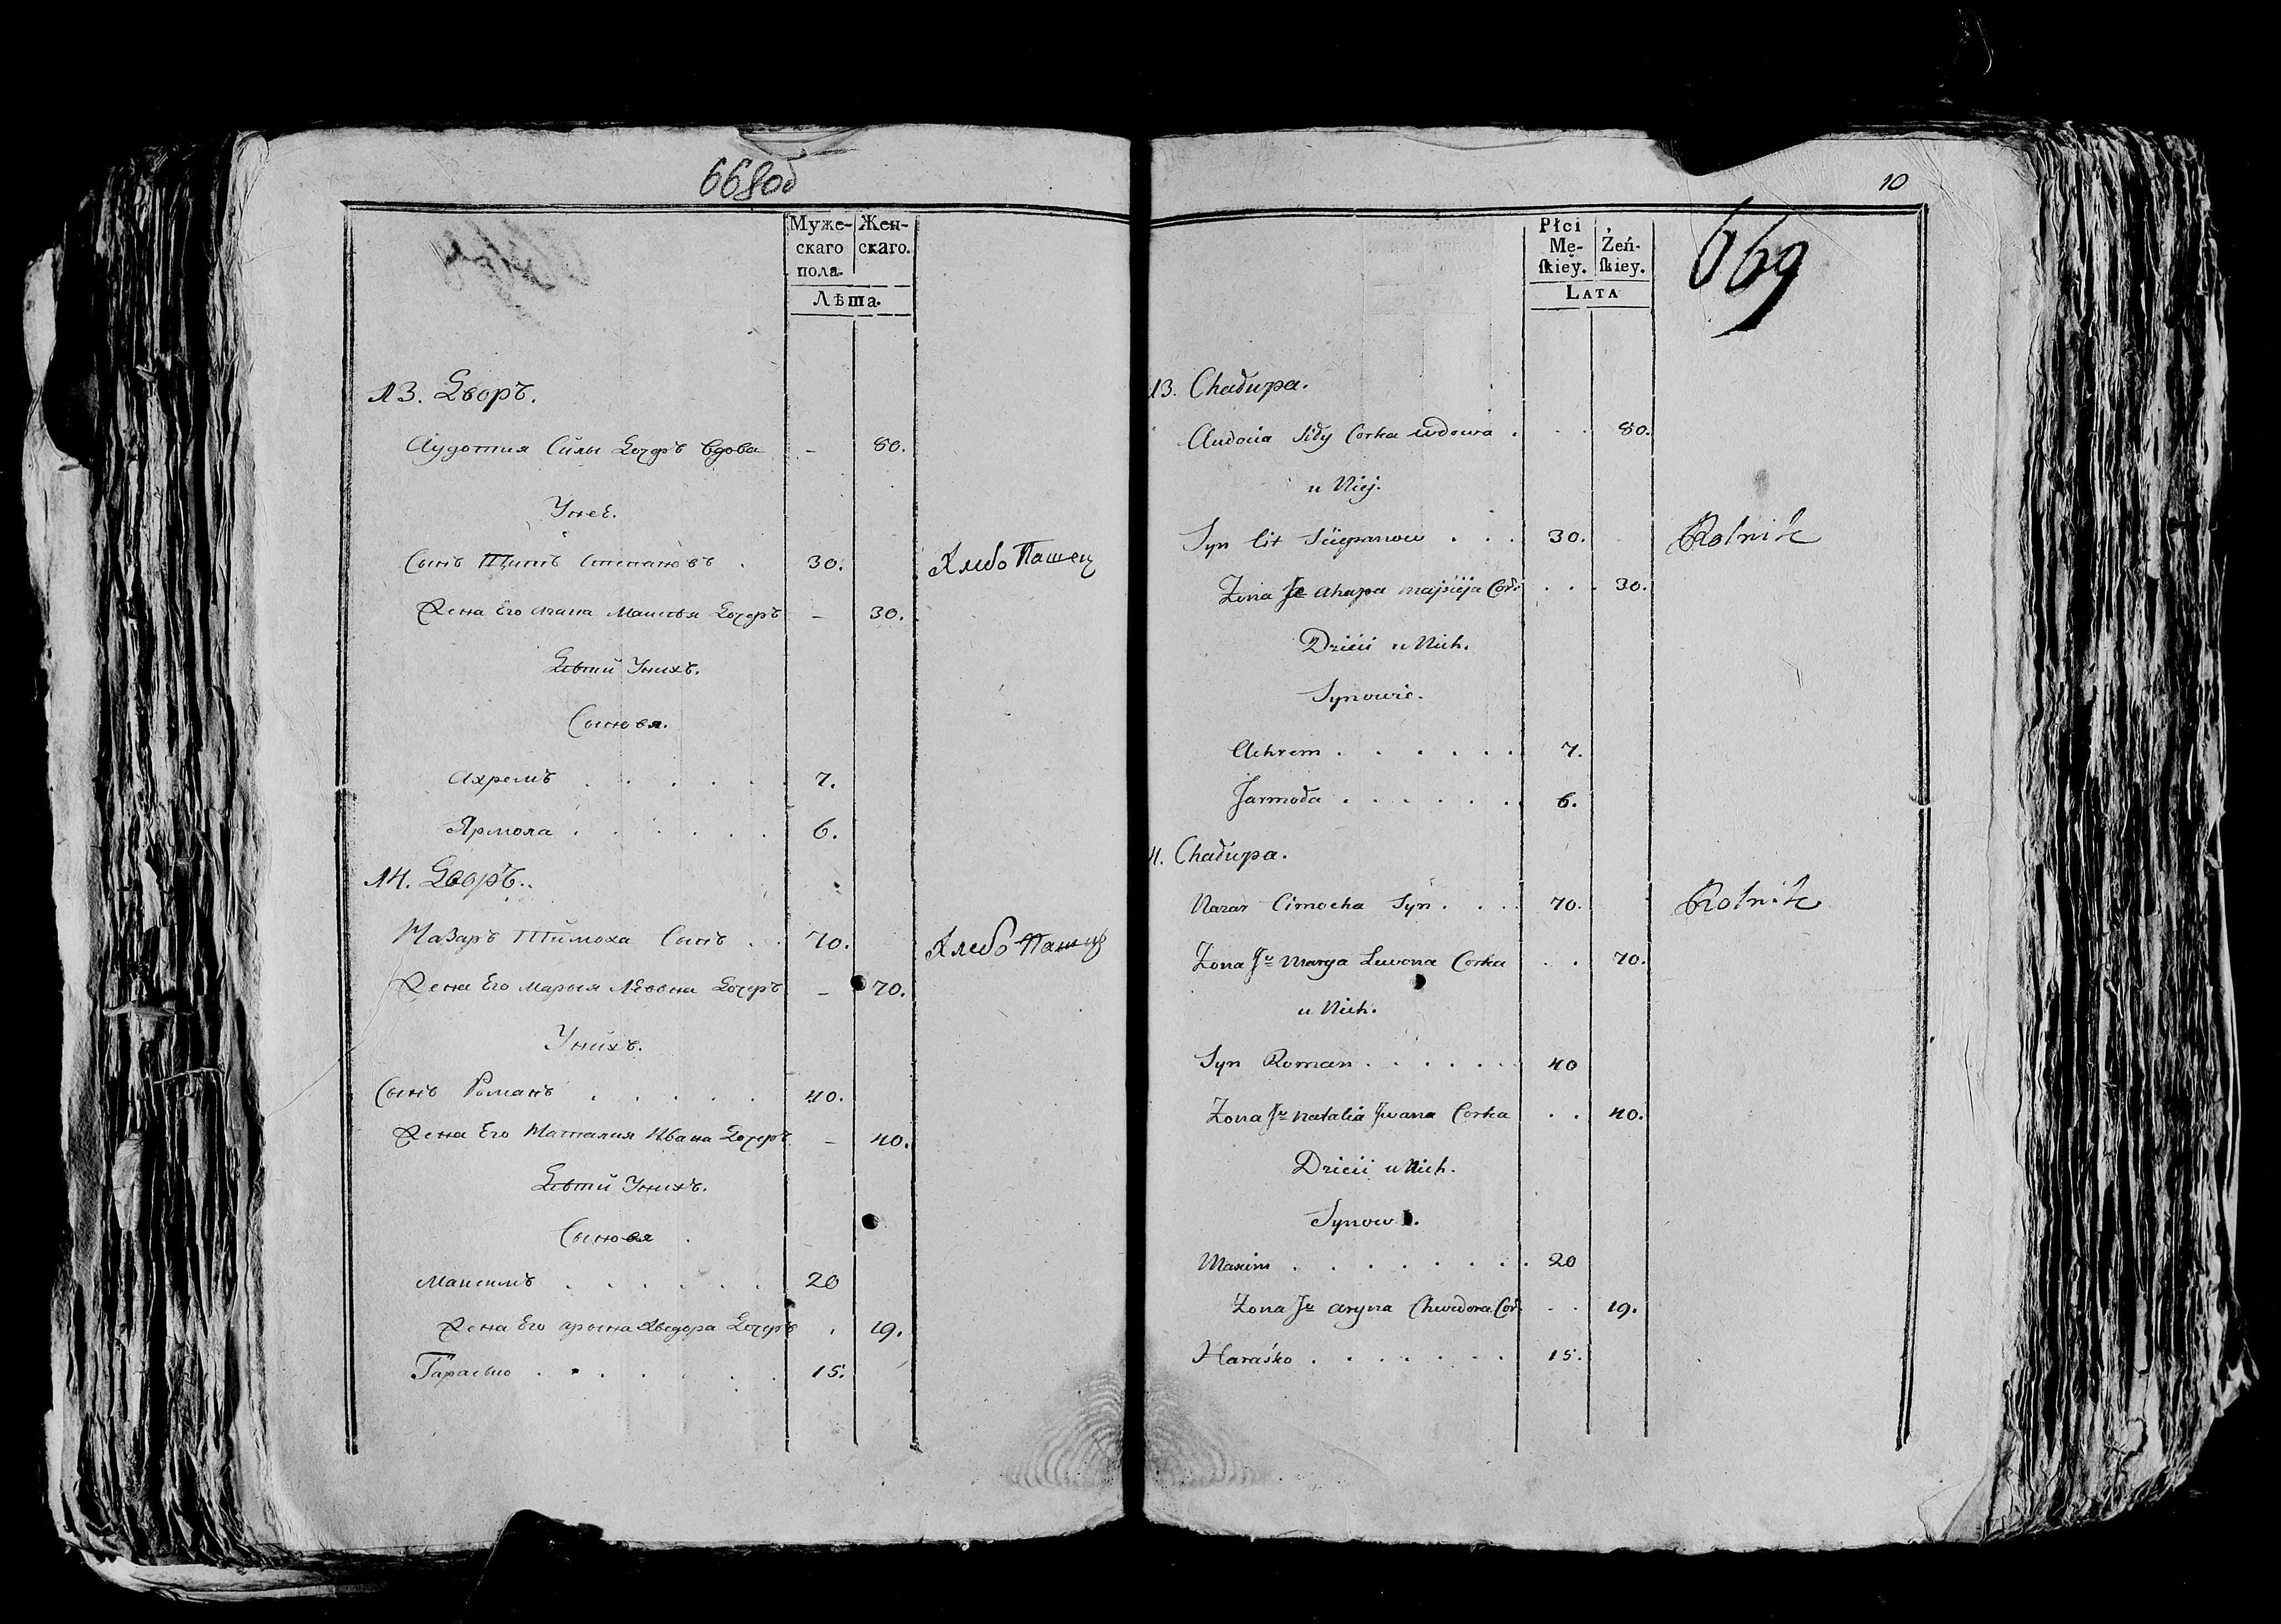 668об
Муже-
скаго
пола.
Жен-
скаго.
Лѣта.
13. Дворъ.
Аудотия Силы Дочерь вдова - 80.
У нее.
Сынъ Титъ Степановъ . 30. Хлебо Пашец
Жена Его Агапа Маисѣя Дочеръ - 30.
Дѣти У нихъ.
Сыновя.
Ахремъ . . . . . 7.
Ярмола . . . . . 6.
14. Дворъ.
Назаръ Тимоха Сынъ . . 70. Хлебо Пашец
Жена Его Марыя Левона Дочеръ - 70.
У нихъ.
Сынъ Романъ . . . . . 40.
Жена Его Наталия Ивана Дочеръ - 40.
Дѣти У нихъ.
Сыновя
Максимъ . . . . . . 20
Жена Его Арына Хведора Дочеръ . 19.
Гарасько . . . . . . . 15.
10
669
Płci
Mę-
ſkiey.
Żeń-
ſkiey.
LATA
13. Chałupa.
Audocia Siły Corka wdowa . . . 80.
u Niej.
Syn Cit Sciepanow . . . 30. Rolnik
Zona Je Ahapa Majsieja Cor: . . . 30.
Dzieci u Nich.
Synowie.
Achrem . . . . . . 7.
Jarmoła . . . . . . 6.
4. Chałupa.
Nazar Cimocha Syn . . . 70. Rolnik
Zona Je Marya Lewona Corka . . 70.
u Nich.
Syn Roman . . . . . . 40
Zona Je Natalia Jwana Corka . . 40.
Dzieci u Nich.
Synow .
Maxim . . . . . . . . 20
Zona Je Aryna Chwedora Cor: . . 19.
Haraśko . . . . . . . 15.